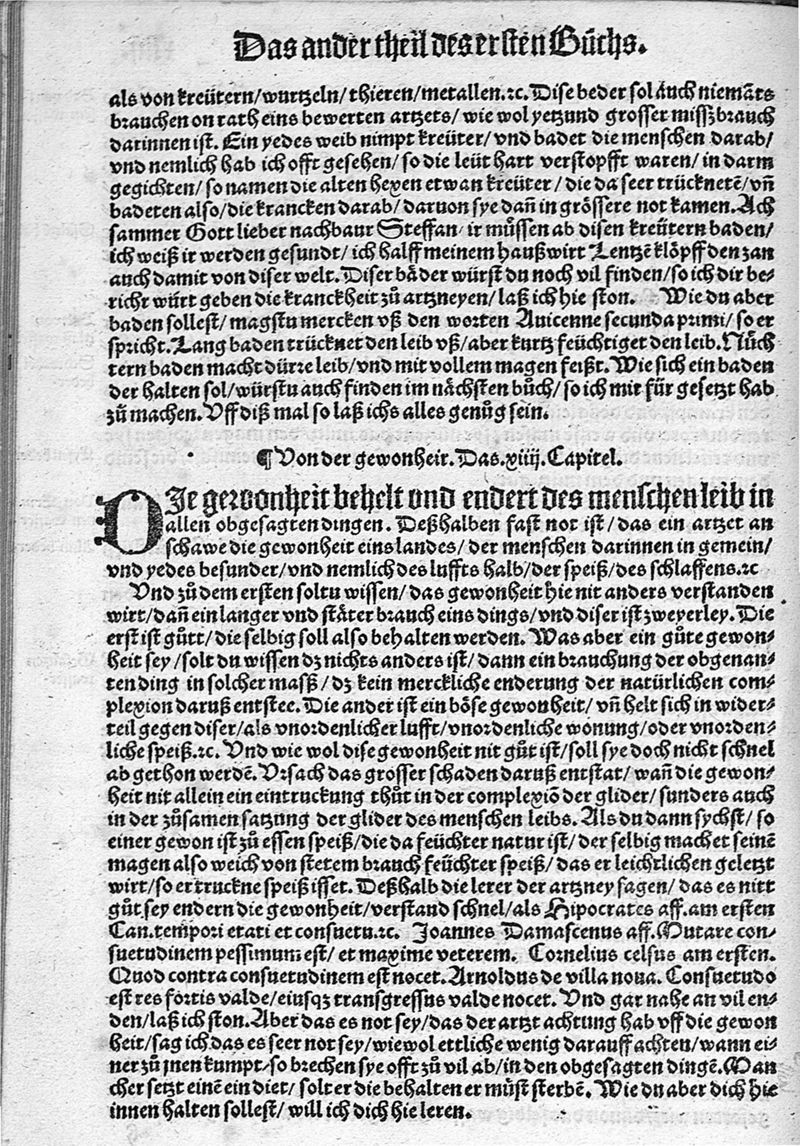 Das ander theil des ersten Bůchs.
als von kreütern/wurtzeln/thieren/metallen.ꝛc. Dise beder sol auch niemāts
brauchen on rath eins bewerten artzets/ wie wol yetzund grosser misszbrauch
darinnen ist. Ein yedes weib nimpt kreüter/ vnd badet die menschen darab/
vnd nemlich hab ich offt gesehen/ so die leüt hart verstopfft waren/ in darm
gegichten/ so namen die alten hexen etwan kreüter/ die da seer trücknetē/ vn̄
badeten also/die krancken darab/ daruon sye dan̄ in grössere not kamen. Ach
sammer Gott lieber nachbaur Steffan/ ir můssen ab disen kreütern baden/
ich weiß ir werden gesundt/ ich halff meinem haußwirt Lentzē klöpff den zan
auch damit von diser welt. Diser bäder würst du noch vil finden/ so ich dir be-
richt würt geben die kranckheit zů artzneyen/ laß ich hie ston. Wie du aber
baden sollest/ magstu mercken vß den worten Auicenne secunda primi/ so er
spricht. Lang baden trücknet den leib vß/ aber kurtz feüchtiget den leib. Nůch
tern baden macht dürre leib/ vnd mit vollem magen feißt. Wie sich ein baden
der halten sol/ würstu auch finden im nächsten bůch/ so ich mit für gesetzt hab
zů machen. Vff diß mal so laß ichs alles genůg sein.
¶ Von der gewonheit. Das .xiiij. Capitel.
DIe gewonheit behelt vnd endert des menschen leib in
allen obgesagten dingen. Deßhalben fast not ist/ das ein artzet an
schawe die gewonheit eins landes/ der menschen darinnen in gemein/
vnd yedes besunder/ vnd nemlich des luffts halb/ der speiß/ des schlaffens.ꝛc
Vnd zů dem ersten soltu wissen/ das gewonheit hie nit anders verstanden
wirt/ dan̄ ein langer vnd stäter brauch eins dings/ vnd diser ist zweyerley. Die
erst ist gůtt/ die selbig soll also behalten werden. Was aber ein gůte gewon-
heit sey/ solt du wissen dz nichts anders ist/ dann ein brauchung der obgenan-
ten ding in solcher masß/ dz kein merckliche enderung der natürlichen com-
plexion daruß entstee. Die ander ist ein böse gewonheit/ vn̄ helt sich in wider-
teil gegen diser/ als vnordenlicher lufft/ vnordenliche wonung/ oder vnorden-
liche speiß.ꝛc. Vnd wie wol dise gewonheit nit gůt ist/ soll sye doch nicht schnel
ab gethon werdē. Vrsach das grosser schaden daruß entstat/ wan̄ die gewon-
heit nit allein ein eintruckung thůt in der complexiō der glider/ sunders auch
in der zůsamen satzung der glider des menschen leibs. Als du dann sychst/ so
einer gewon ist zů essen speiß/ die da feüchter natur ist/ der selbig machet seinē
magen also weich von stetem brauch feüchter speiß/ das er leichtlichen geletzt
wirt/ so er truckne speiß isset. Deßhalb die lerer der artzney sagen/ das es nitt
gůt sey endern die gewonheit/ verstand schnel/ als Hipocrates aff. am ersten
Can. tempori etati et consuetu.ꝛc. Joannes Damascenus aff. Mutare con-
suetudinem pessimum est/ et maxime veterem. Cornelius celsus am ersten.
Quod contra consuetudinem est nocet. Arnoldus de villa noua. Consuetudo
est res fortis valde/ eiusqȝ transgressus valde nocet. Vnd gar nahe an vil en-
den/ laß ich ston. Aber das es not sey/ das der artzt achtung hab vff die gewon
heit/ sag ich das es seer not sey/ wiewol ettliche wenig darauff achten/ wann ei-
ner zů jnen kumpt/ so brechen sye offt zů vil ab/ in den obgesagten dingē. Man
cher setzt einē ein diet/ solt er die behalten er můst sterbē. Wie du aber dich hie
innen halten sollest/ will ich dich hie leren.